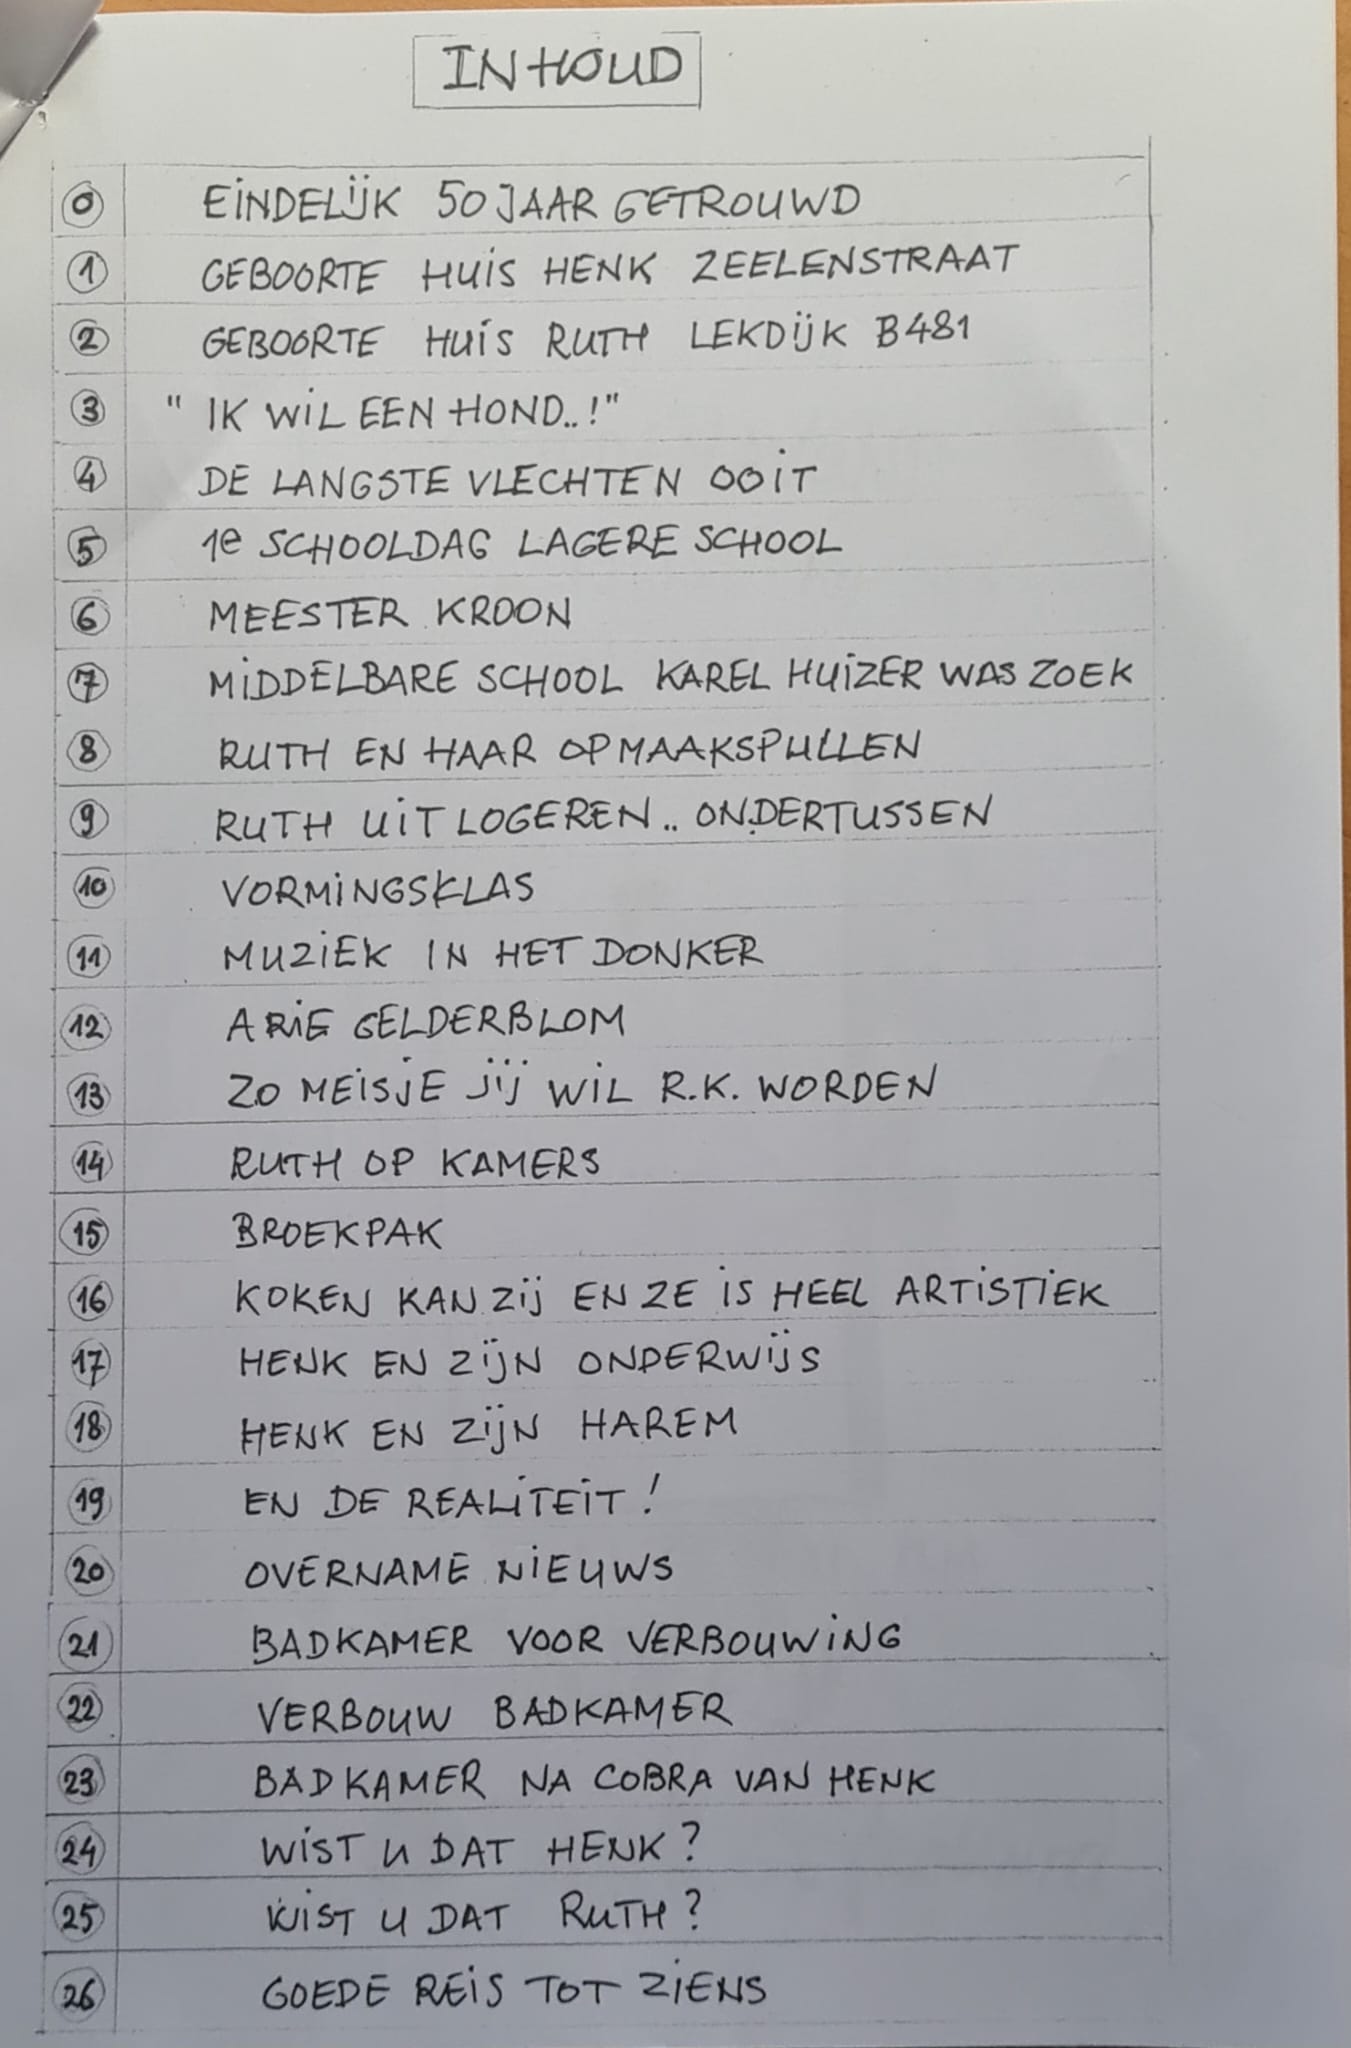 INHOUD
0 EINDELIJK 50 JAAR GETROUWD
1 GEBOORTE HUIS HENK ZEELENSTRAAT
2 GEBOORTE HUIS RUTH LEKDIJK B481
3 " IK WIL EEN HOND..!"
4 DE LANGSTE VLECHTEN OOIT
5 1e SCHOOLDAG LAGERE SCHOOL
6 MEESTER KROON
7 MIDDELBARE SCHOOL KAREL HUIZER WAS ZOEK
8 RUTH EN HAAR OPMAAKSPULLEN
9 RUTH UIT LOGEREN.. ONDERTUSSEN
10 VORMINGSKLAS
11 MUZIEK IN HET DONKER
12 ARIE GELDERBLOM
13 ZO MEISJE JIJ WIL R.K. WORDEN
14 RUTH OP KAMERS
15 BROEKPAK
16 KOKEN KAN ZIJ EN ZE IS HEEL ARTISTIEK
17 HENK EN ZIJN ONDERWIJS
18 HENK EN ZIJN HAREM
19 EN DE REALITEIT!
20 OVERNAME NIEUWS
21 BADKAMER VOOR VERBOUWING
22 VERBOUW BADKAMER
23 BADKAMER NA COBRA VAN HENK
24 WIST U DAT HENK?
25 WIST U DAT RUTH?
26 GOEDE REIS TOT ZIENS